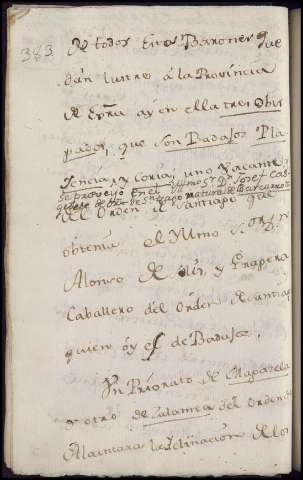 383
De todos Estos Barones que
dan lustre á la Provincia
de Extra ay en ella tres Obis
pados, que son Badajoz Pla
sencia, y Coria, uno Vacante
Se proveyó en el Illmo Sr. Dn Josef
de Santiago natural de Barcarrota
del Orden de Santiago que
obtenia el Illmo Sr
Dn
Alonso de Solis, y Gragera
Caballero del Orden de Santiago
quien oy es de Badajoz.
Un Priorato de Magazela
y otro de Zalamea del Orden de
Alcantara la Ileinacion de los